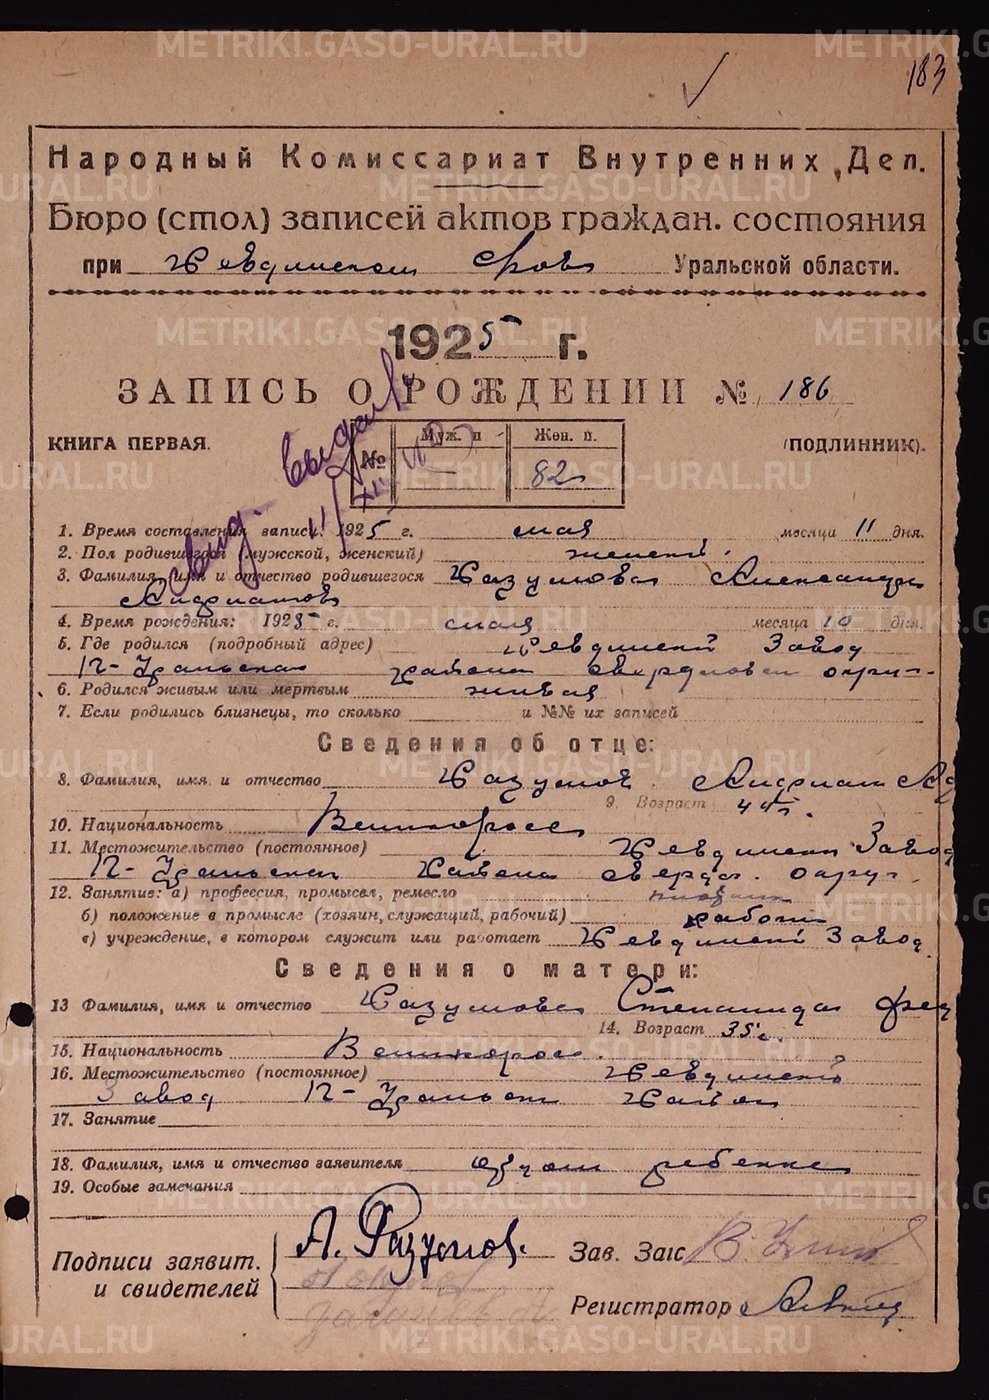 183
Народный Комиссариат Внутренних Дел.
Бюро (стол) записей актов граждан. состояния
при Ревдинском Уральской области.
1925 г.
ЗАПИСЬ О РОЖДЕНИИ № 186
КНИГА ПЕРВАЯ. № Муж. п. – Жен. п. 82 (ПОДЛИННИК).
1. Время составления записи: 1925 г. мая месяца 11 дня.
2. Пол родившегося (мужской, женский) женский.
3. Фамилия, имя и отчество родившегося Разумова Александра
4. Время рождения: 1925 г. мая месяца 10 дня.
5. Где родился (подробный адрес) Ревдинский Завод
П-Уральская района Свердловск округ.
6. Родился живым или мертвым живая
7. Если родились близнецы, то сколько и №№ их записей
Сведения об отце:
8. Фамилия, имя и отчество Разумов
9. Возраст 44 г.
10. Национальность Великоросс
11. Местожительство (постоянное) Ревдинский Завод
П-Уральский Района Свердл. округ.
12. Занятие: а) профессия, промысел, ремесло
б) положение в промысле (хозяин, служащий, рабочий) рабочий
в) учреждение, в котором служит или работает Ревдинский Завод.
Сведения о матери:
13 Фамилия, имя и отчество Разумова Степанида
14. Возраст 35 г.
15. Национальность Великоросс.
16. Местожительство (постоянное) Ревдинский
Завод П-Уральск Район
17. Занятие
18. Фамилия, имя и отчество заявителя отец ребенка
19. Особые замечания
Подписи заявит. и свидетелей А. Разумов.
Зав. Загс
Регистратор